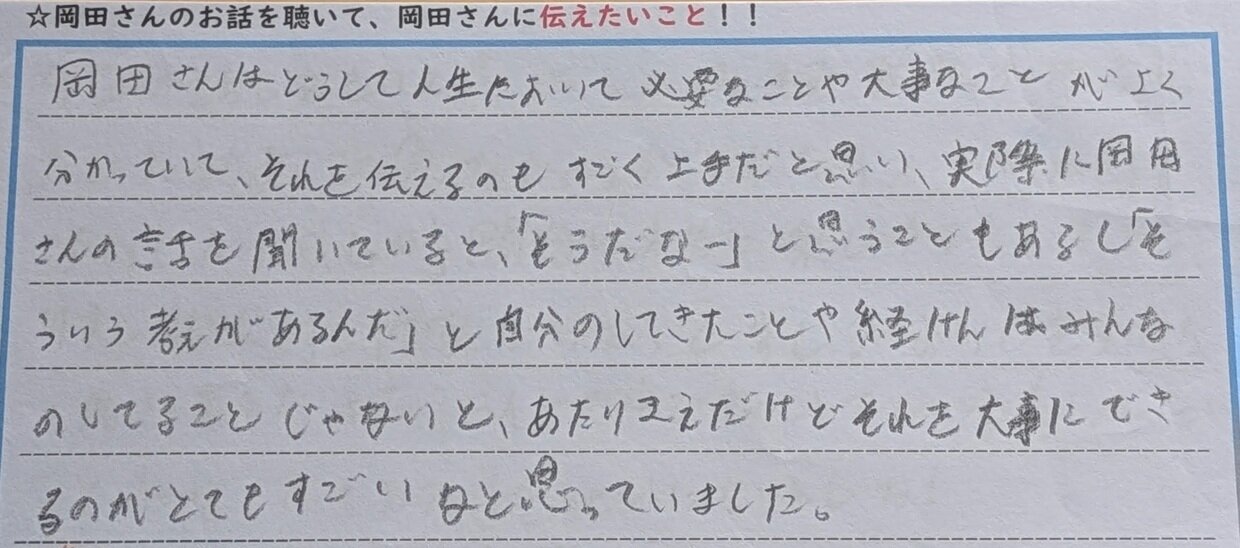 ☆岡田さんのお話を聴いて、岡田さんに伝えたいこと！！
岡田さんはどうして人生において必要なことや大事なことがよく
分かっていて、それを伝えるのもすごく上手だと思い、実際に岡田
さんの話を聞いていると、「そうだなー」と思うこともあるし「そ
ういう考えがあるんだ」と自分のしてきたことや経けんはみんな
のしてることじゃないと、あたりまえだけどそれを大事にでき
るのがとてもすごいなと思っていました。